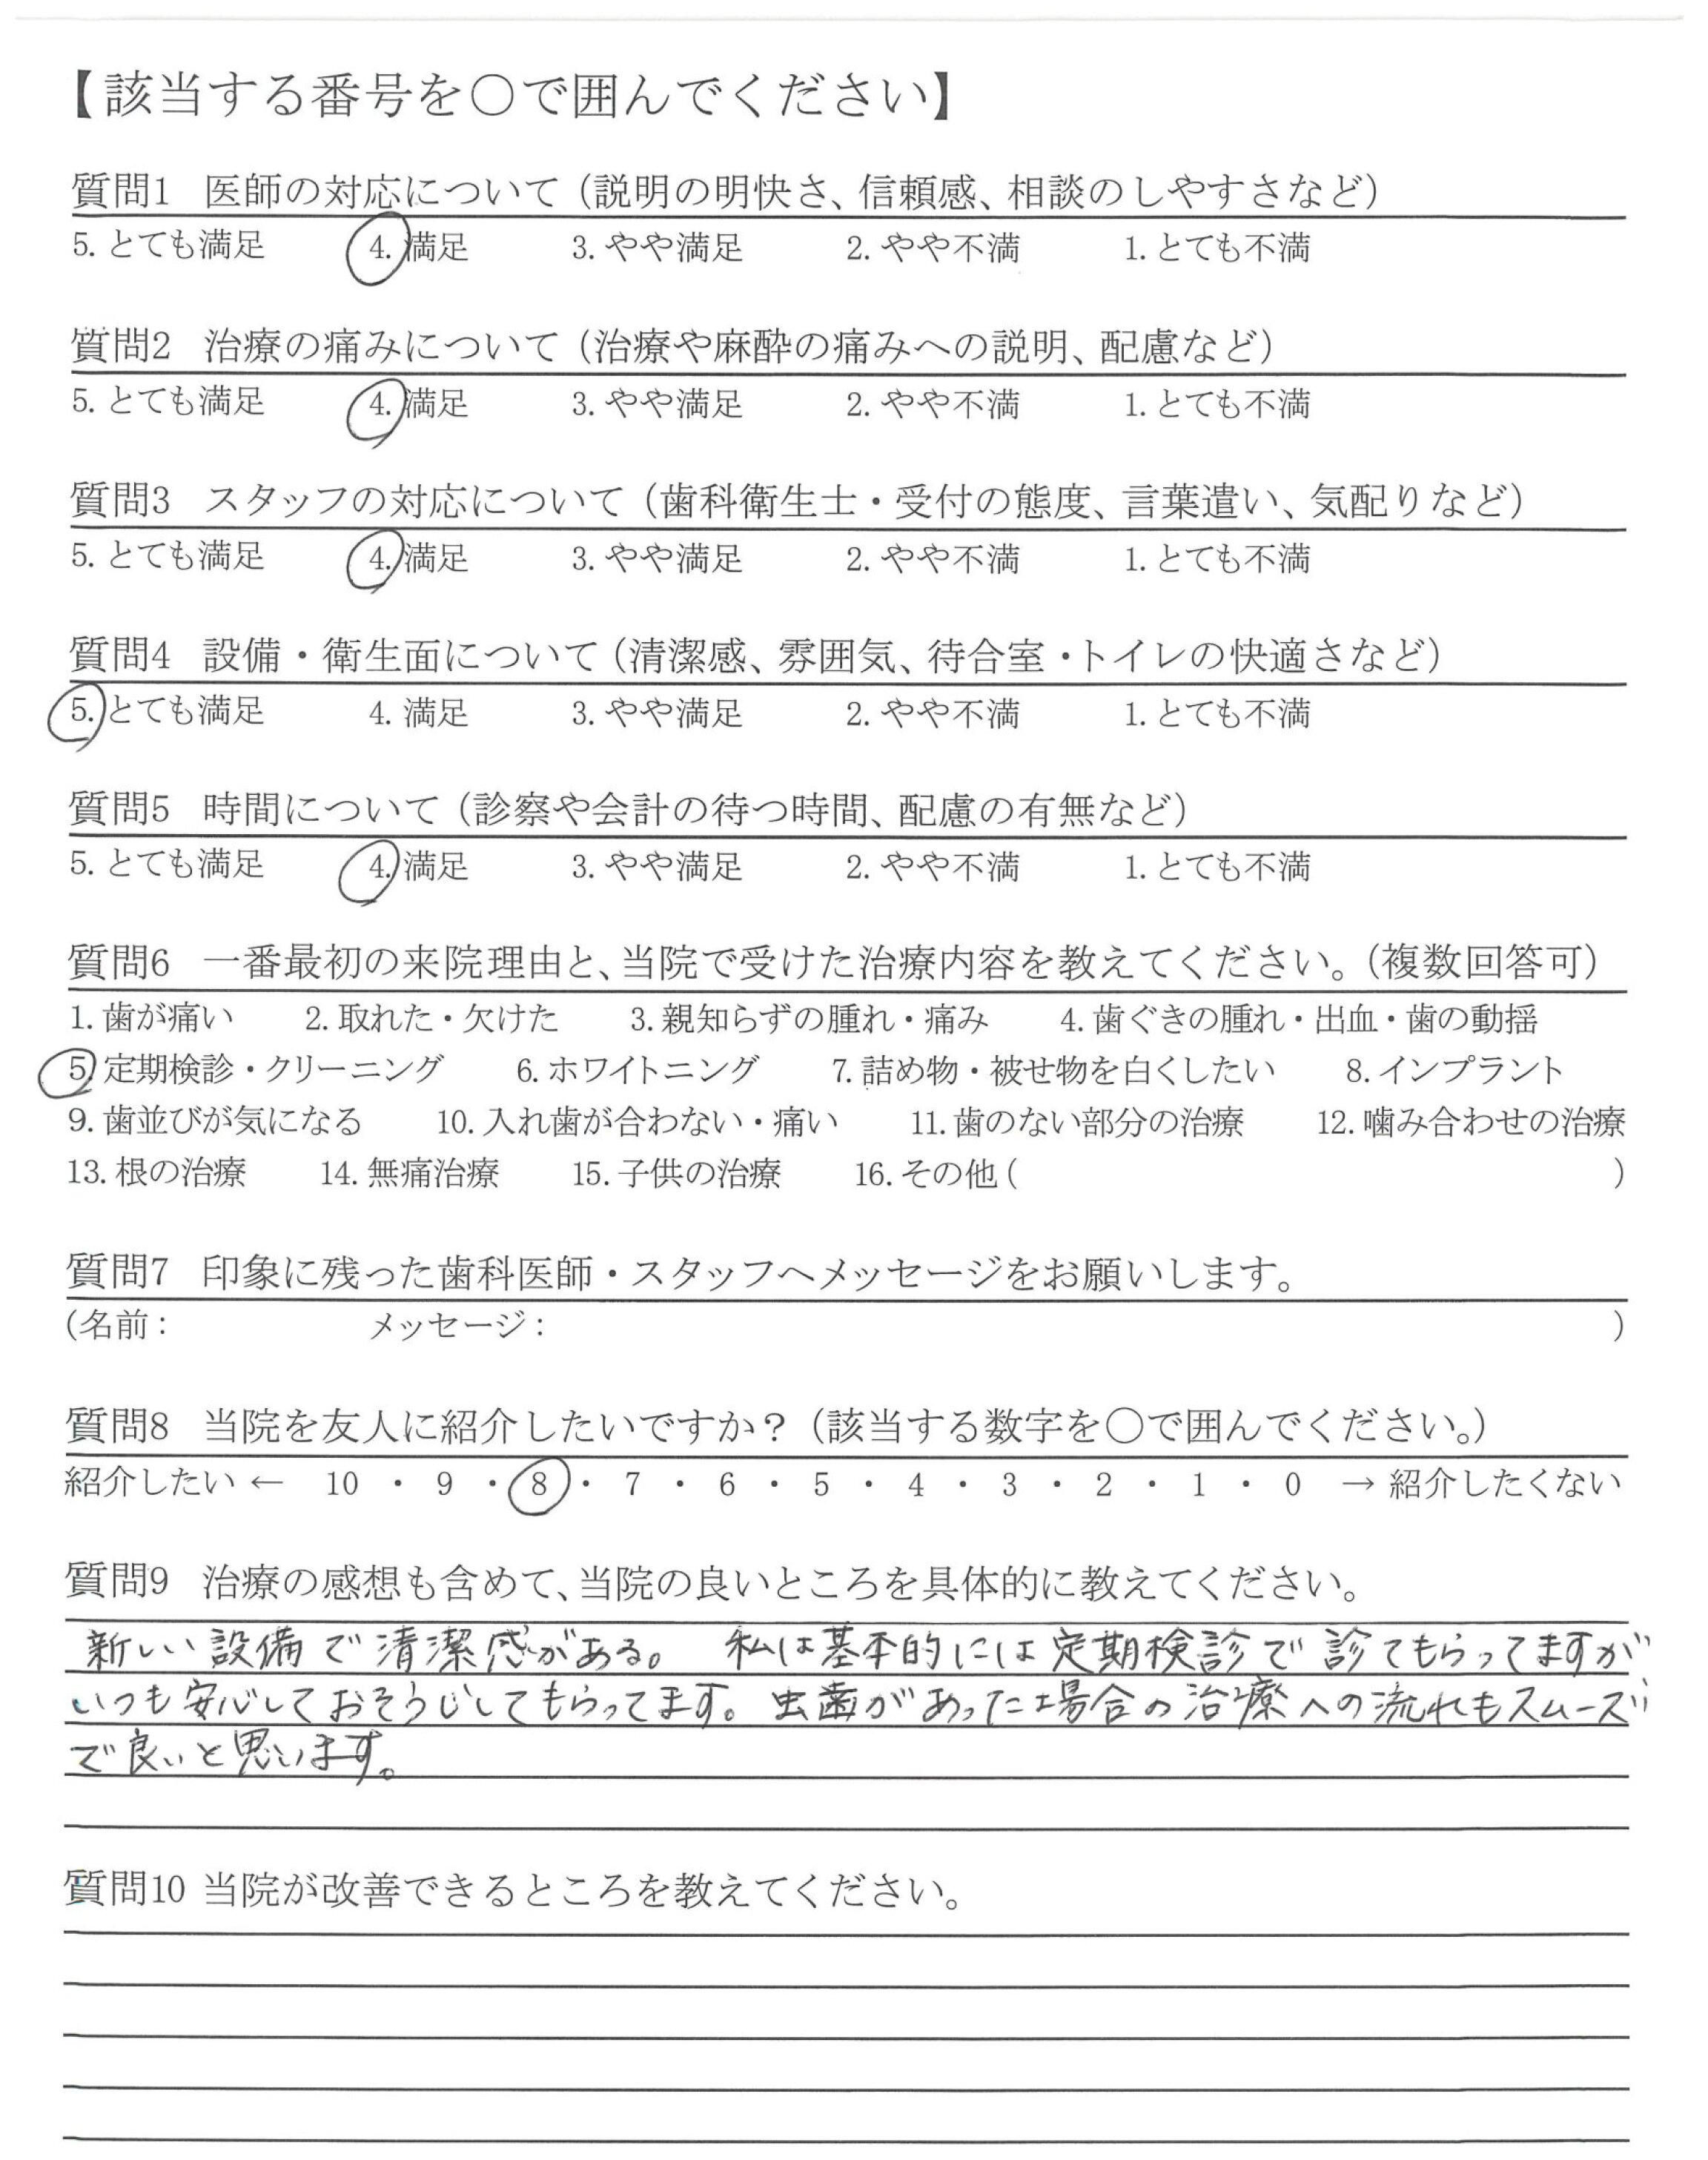 【該当する番号を〇で囲んでください】
質問1 医師の対応について（説明の明快さ、信頼感、相談のしやすさなど）
5. とても満足 4. 満足 3. やや満足 2. やや不満 1. とても不満
質問2 治療の痛みについて（治療や麻酔の痛みへの説明、配慮など）
5. とても満足 4. 満足 3. やや満足 2. やや不満 1. とても不満
質問3 スタッフの対応について（歯科衛生士・受付の態度、言葉遣い、気配りなど）
5. とても満足 4. 満足 3. やや満足 2. やや不満 1. とても不満
質問4 設備・衛生面について（清潔感、雰囲気、待合室・トイレの快適さなど）
5. とても満足 4. 満足 3. やや満足 2. やや不満 1. とても不満
質問5 時間について（診察や会計の待つ時間、配慮の有無など）
5. とても満足 4. 満足 3. やや満足 2. やや不満 1. とても不満
質問6 一番最初の来院理由と、当院で受けた治療内容を教えてください。（複数回答可）
1. 歯が痛い 2. 取れた・欠けた 3. 親知らずの腫れ・痛み 4. 歯ぐきの腫れ・出血・歯の動揺
5. 定期検診・クリーニング 6. ホワイトニング 7. 詰め物・被せ物を白くしたい 8. インプラント
9. 歯並びが気になる 10. 入れ歯が合わない・痛い 11. 歯のない部分の治療 12. 噛み合わせの治療
13. 根の治療 14. 無痛治療 15. 子供の治療 16. その他 ( )
質問7 印象に残った歯科医師・スタッフへメッセージをお願いします。
(名前： メッセージ： )
質問8 当院を友人に紹介したいですか？（該当する数字を〇で囲んでください。）
紹介したい ← 10 ・ 9 ・ 8 ・ 7 ・ 6 ・ 5 ・ 4 ・ 3 ・ 2 ・ 1 ・ 0 → 紹介したくない
質問9 治療の感想も含めて、当院の良いところを具体的に教えてください。
新しい設備で清潔感がある。 私は基本的には定期検診で診てもらってますが
いつも安心しておそうじしてもらってます。虫歯があった場合の治療への流れもスムーズ
で良いと思います。
質問10 当院が改善できるところを教えてください。